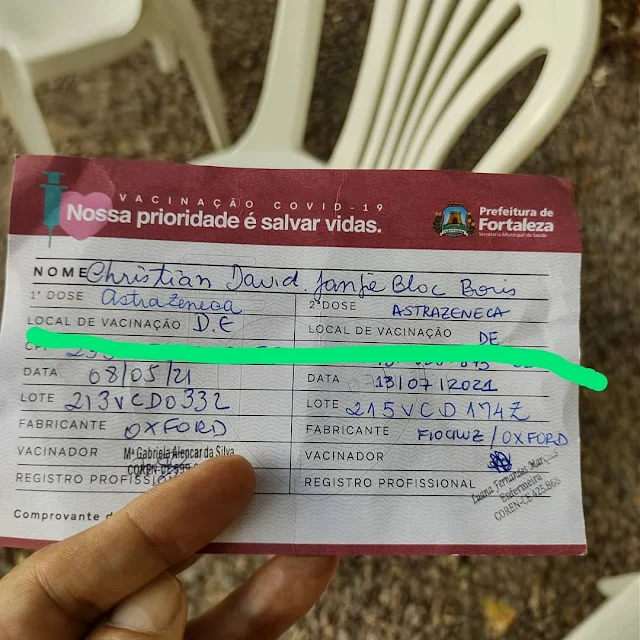 VACINAÇÃO COVID-19
Nossa prioridade é salvar vidas.
Prefeitura de
Fortaleza
Secretaria Municipal da Saúde
NOME Christian David Bloc Boris
1ª DOSE Astrazeneca
LOCAL DE VACINAÇÃO D.E
DATA 08/05/21
LOTE 213VCD033Z
FABRICANTE OXFORD
VACINADOR Mª Gabriela Alencar da Silva
REGISTRO PROFISSIONAL
2ª DOSE ASTRAZENECA
LOCAL DE VACINAÇÃO DE
DATA 13/07/2021
LOTE 215VCD174Z
FABRICANTE FIOCRUZ/OXFORD
VACINADOR
REGISTRO PROFISSIONAL
Luana Fernandes
Enfermeira
COREN-CE 425.866
Comprovante